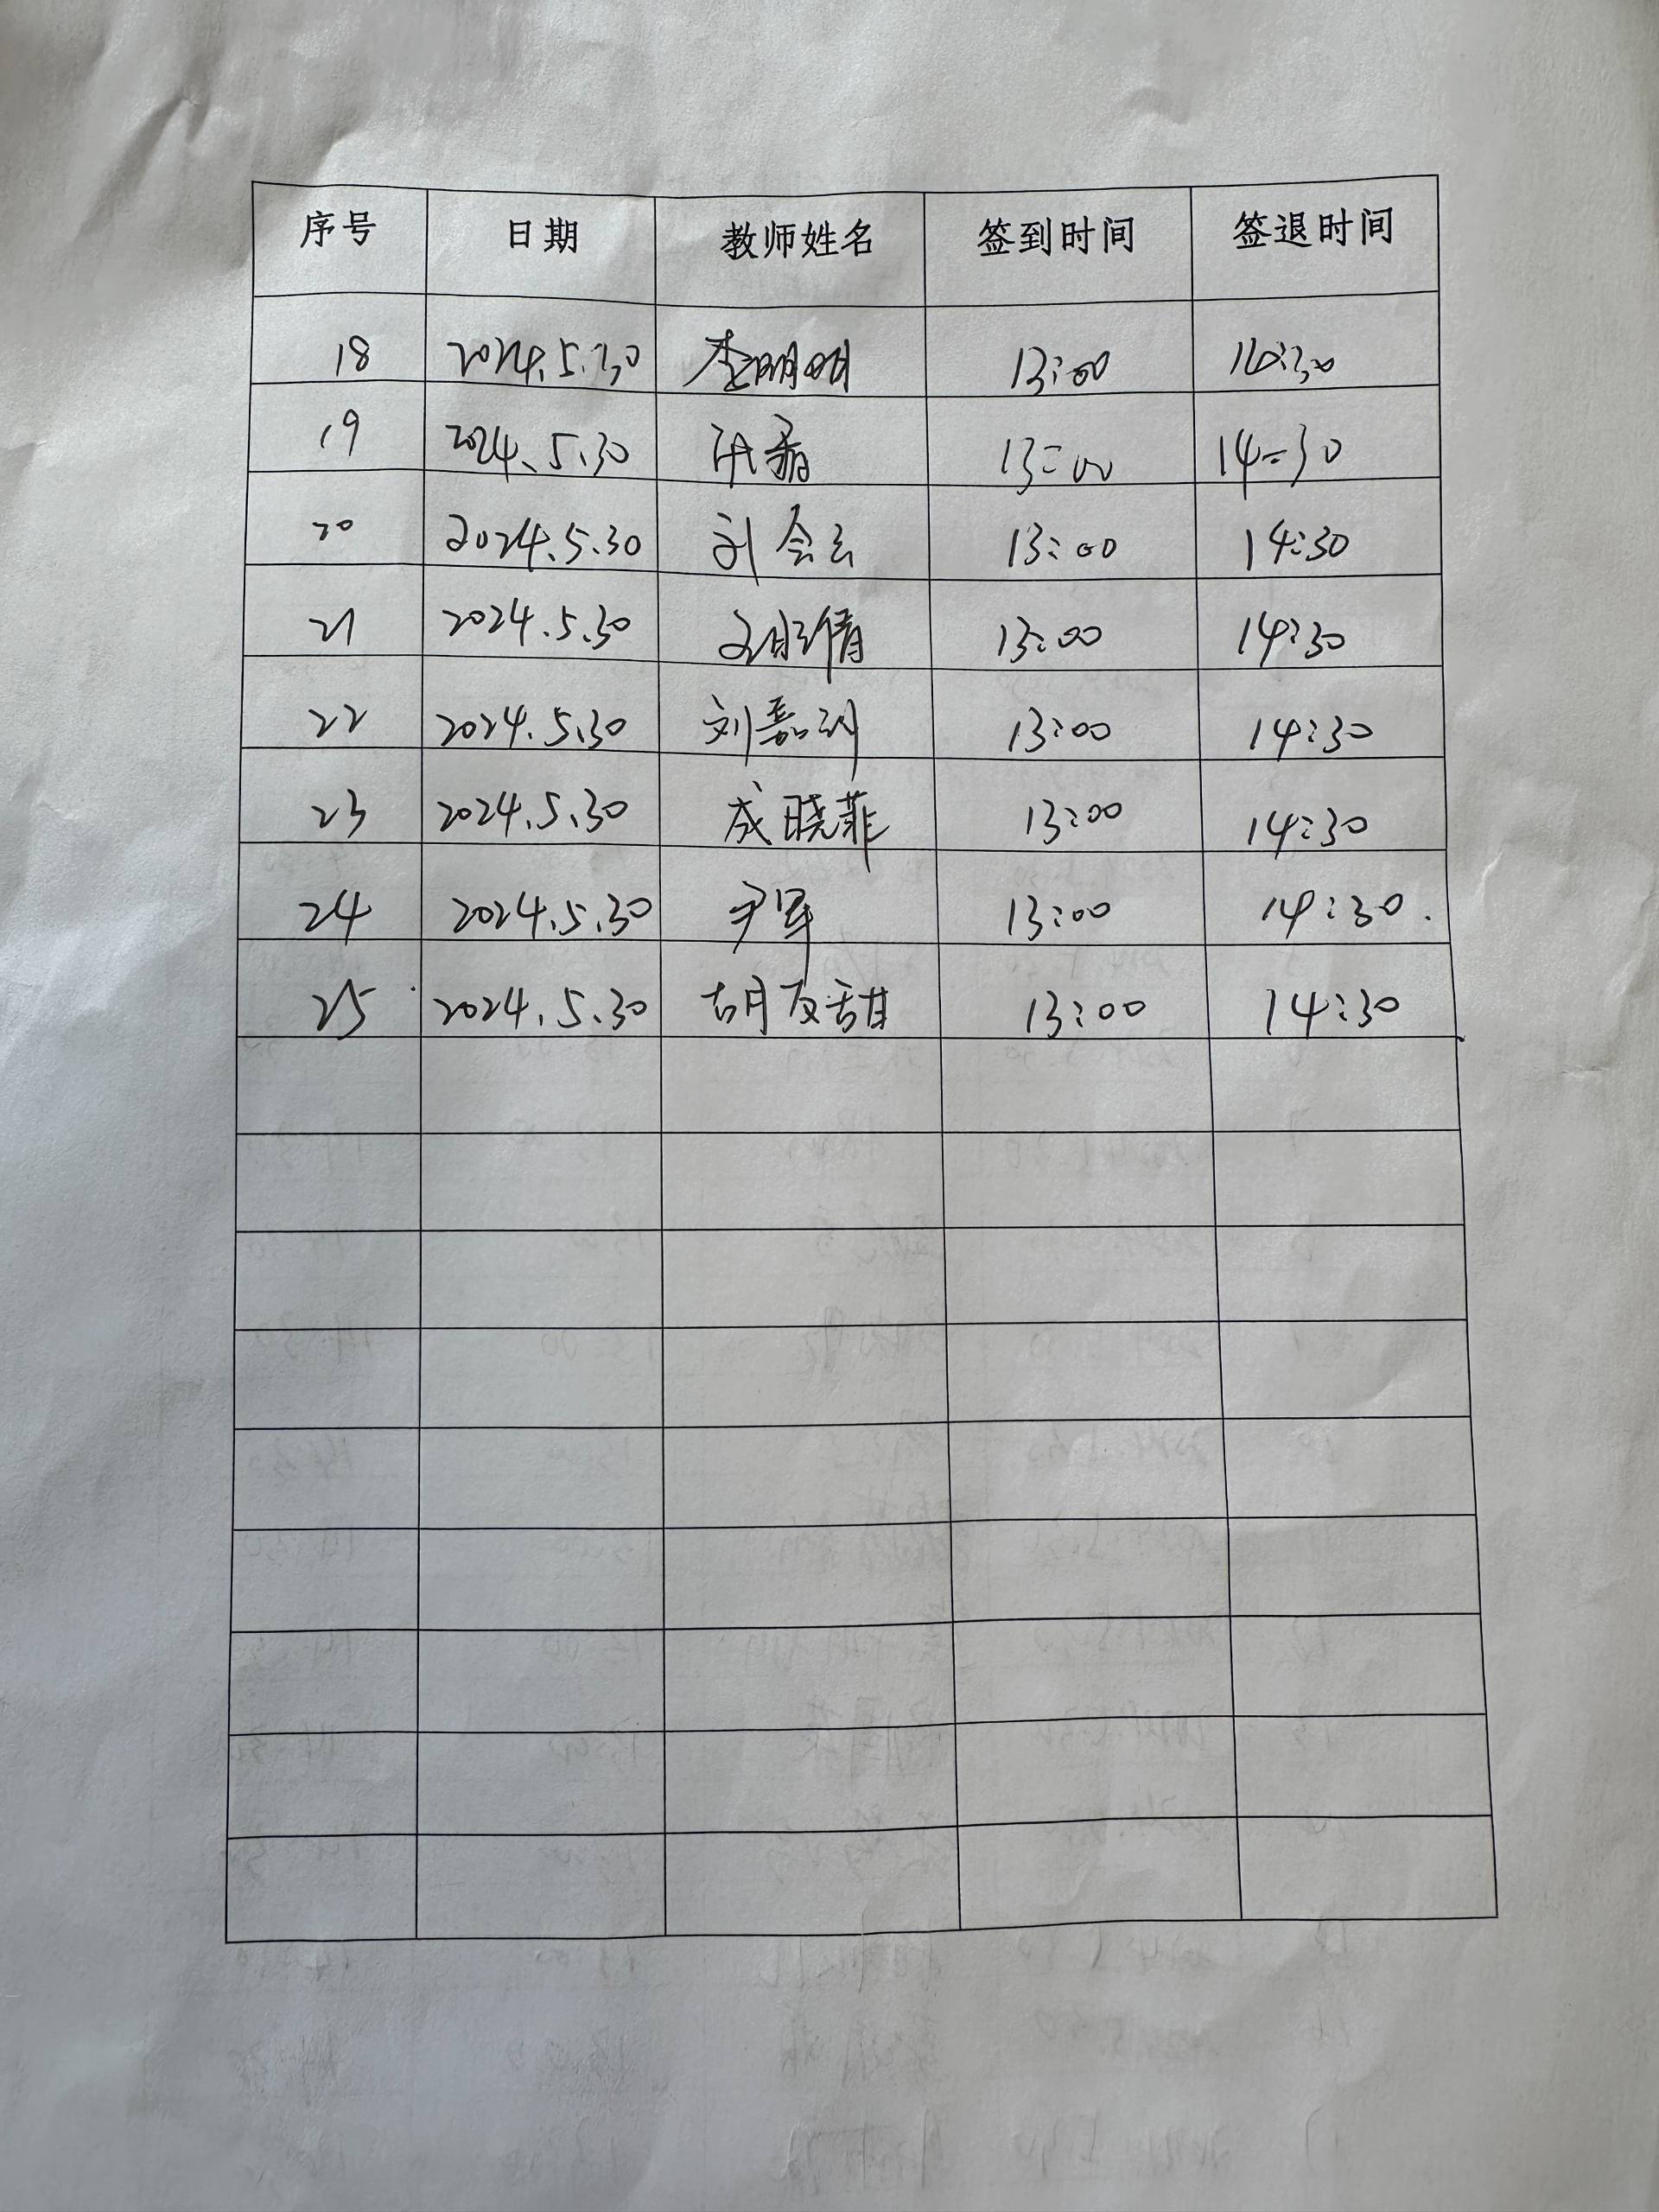 序号 日期 教师姓名 签到时间 签退时间
18 2024.5.30 李明明 13:00 14:30
19 2024.5.30 13:00 14:30
20 2024.5.30 刘会云 13:00 14:30
21 2024.5.30 13:00 14:30
22 2024.5.30 刘嘉 13:00 14:30
23 2024.5.30 成晓菲 13:00 14:30
24 2024.5.30 尹军 13:00 14:30.
25 2024.5.30 胡反甜 13:00 14:30